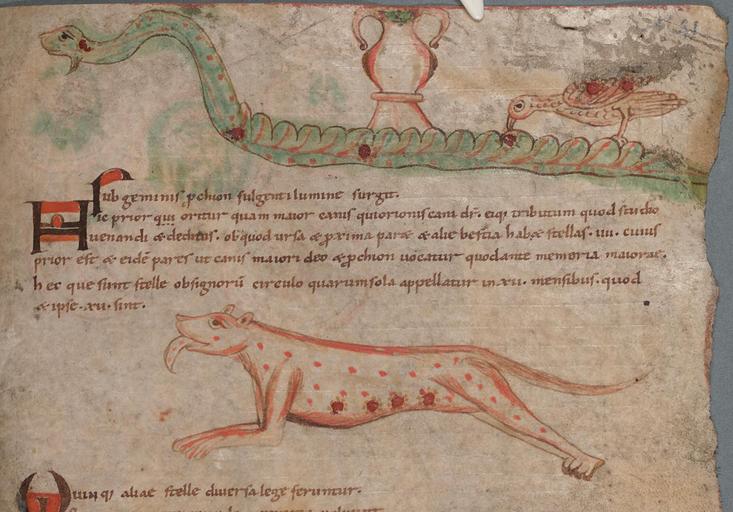 Sub geminis pchion fulgenti lumine surgit.
Hic prior qui oritur quam maior canis quiorioniscanis dr̄. eiq; tributum quod studio
uenandi & dechetis. ob quod ursa & pxima paræ & aliæ bestia habæ stellas. iiii. cuius
prior est & eidē pares ut canis maiori deo & pchion uocatur quodante memoria maioræ.
hec que sunt stelle obsignorū circulo quarumsola appellatur in xii. mensibus. quod
& ipse. xii. sint.
Quinq; aliae stelle diuersa lege feruntur.